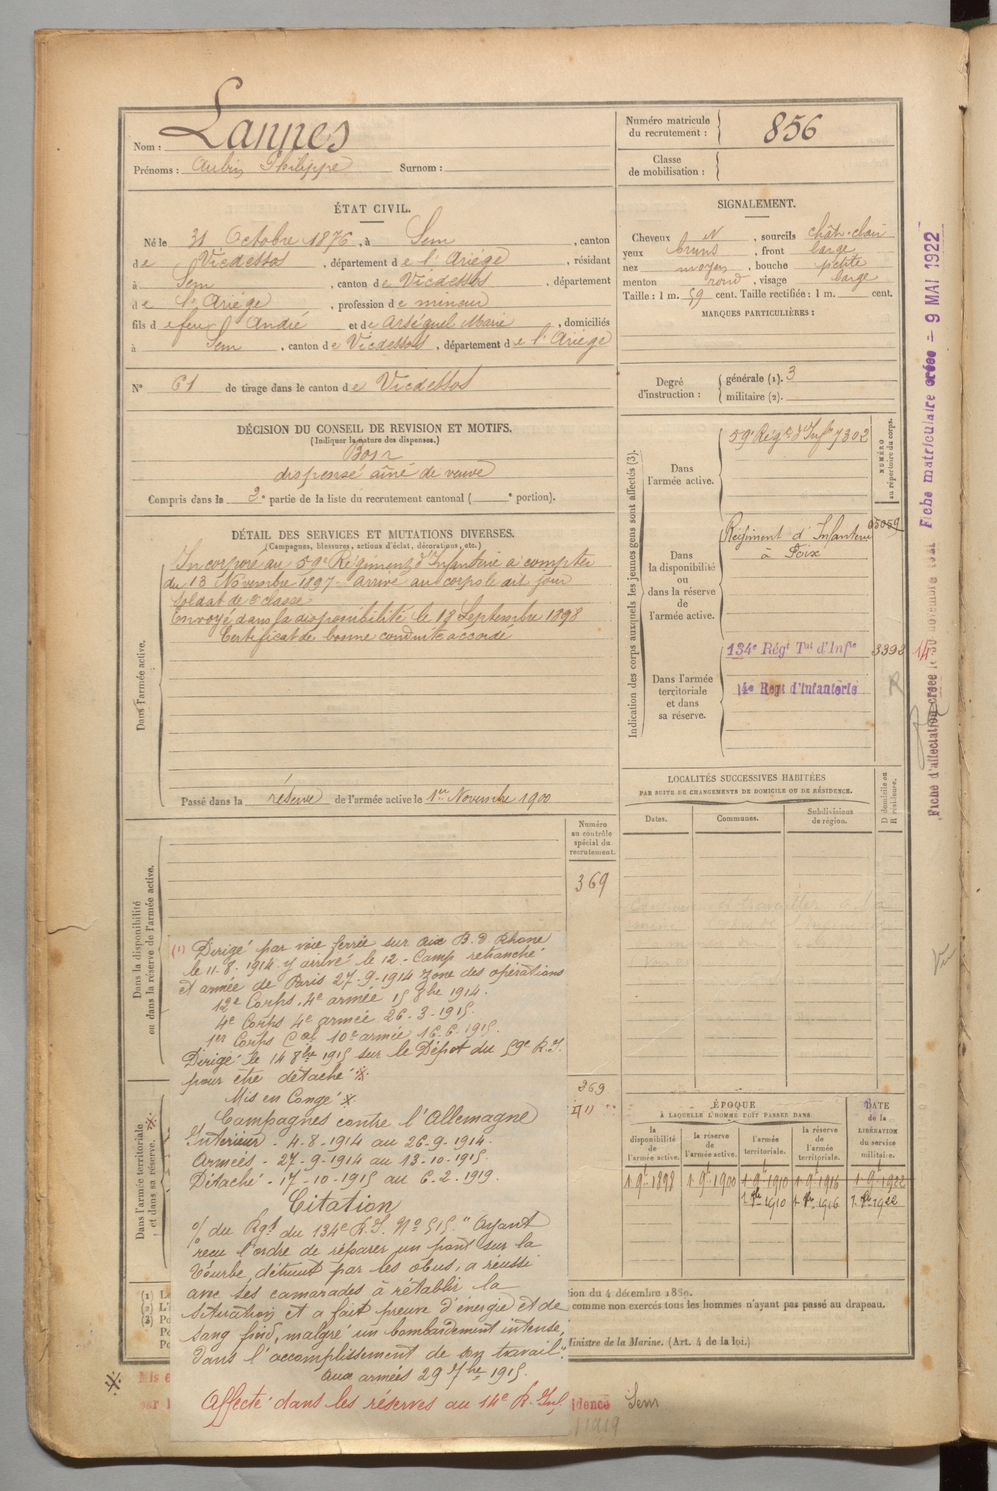 Nom : Lannes
Prénoms : Aubin Philippe Surnom :
Numéro matricule du recrutement : 856
Classe de mobilisation :
ÉTAT CIVIL.
Né le 31 Octobre 1876, à Sem, canton
de Vicdessos, département de l'Ariège, résidant
à Sem, canton de Vicdessos, département
de l'Ariège, profession de mineur
fils de feu André et de Arséguel Marie, domiciliés
à Sem, canton de Vicdessos, département de l'Ariège
N° 61 de tirage dans le canton de Vicdessos
SIGNALEMENT.
Cheveux N, sourcils chât-clair
yeux bruns, front large
nez moyen, bouche petite
menton rond, visage large
Taille : 1 m. 59 cent. Taille rectifiée : 1 m. cent.
MARQUES PARTICULIÈRES :
Degré d'instruction : générale (1). 3
militaire (2).
DÉCISION DU CONSEIL DE REVISION ET MOTIFS.
(Indiquer la nature des dispenses.)
Bon
dispensé aîné de veuve
Compris dans la 2e partie de la liste du recrutement cantonal ( e portion).
DÉTAIL DES SERVICES ET MUTATIONS DIVERSES.
(Campagnes, blessures, actions d'éclat, décorations, etc.)
Dans l'armée active.
Incorporé au 59e Régiment d'Infanterie à compter
du 13 Novembre 1897 arrivé au corps le dit jour
soldat de 2e classe
Envoyé dans la disponibilité le 18 Septembre 1898
Certificat de bonne conduite accordé
Passé dans la réserve de l'armée active le 1er Novembre 1900
Indication des corps auxquels les jeunes gens sont affectés (3).
NUMÉRO au répertoire du corps.
Dans l'armée active.
59e Régt d'Infie 7302
Dans la disponibilité ou dans la réserve de l'armée active.
Régiment d'Infanterie
à Foix
05059
Dans l'armée territoriale et dans sa réserve.
134e Régt Tal d'Infie 3392
14e Regt d'Infanterie
R
Fiche matriculaire créée = 9 MAI 1922
LOCALITÉS SUCCESSIVES HABITÉES
PAR SUITE DE CHANGEMENTS DE DOMICILE OU DE RÉSIDENCE.
Dates. Communes. Subdivisions de région.
D domicile ou R résidence.
Dans la disponibilité ou dans la réserve de l'armée active.
Numéro au contrôle spécial du recrutement.
369
(1) Dirigé par voie ferrée sur Aix B. d Rhone
le 11-8-1914 y arrivé le 12 - Camp retranché
et armée de Paris 27-9-1914 zone des opérations
12e Corps 4e armée 15 8bre 1914.
4e Corps 4e armée 26-3-1915.
1er Corps Cal 10e armée 16-6-1915.
Dirigé le 14 8bre 1915 sur le Dépot du 59e R.I.
pour être détaché ※
Mis en Congé ※
Campagnes contre l'Allemagne
Intérieur - 4-8-1914 au 26-9-1914.
Armées - 27-9-1914 au 13-10-1915
Détaché - 17-10-1915 au 6-2-1919.
Citation
O/ du Rgt du 134e R.I. N° 515. "Ayant
reçu l'ordre de réparer un pont sur la
Tourbe, détruit par les obus, a réussi
avec ses camarades à rétablir la
situation et a fait preuve d'énergie et de
sang froid, malgré un bombardement intense,
dans l'accomplissement de son travail".
Aux armées 29 7bre 1915.
Affecté dans les réserves au 14e R. Inf.
Dans l'armée territoriale et dans sa réserve.
369
ÉPOQUE
À LAQUELLE L'HOMME DOIT PASSER DANS
DATE de la LIBÉRATION du service militaire.
la disponibilité de l'armée active. la réserve de l'armée active. l'armée territoriale. la réserve de l'armée territoriale.
1-9t-1898 1-9t-1900 1-9t-1910 1-9t-1916 1-9t-1922
1-8bre-1910 1-8bre-1916 1-8bre-1922
tion du 4 décembre 1889.
comme non exercés tous les hommes n'ayant pas passé au drapeau.
Ministre de la Marine. (Art. 4 de la loi.)
(1)
(2)
(3)
Mis e
dence Sem
1919